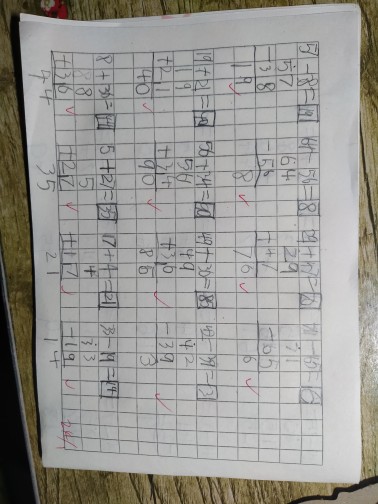 57-38=19 64-56=8 29+47=76 71-65=6
57 64 29 71
-38 -56 +47 -65
19 8 76 6
19+21=40 56+34=90 49+36=85 42-39=3
19 56 49 42
+21 +34 +36 -39
40 90 85 3
8+36=44 5+27=35 17+4=21 33-19=14
8 5 4 33
+36 +27 +17 -19
44 35 21 14